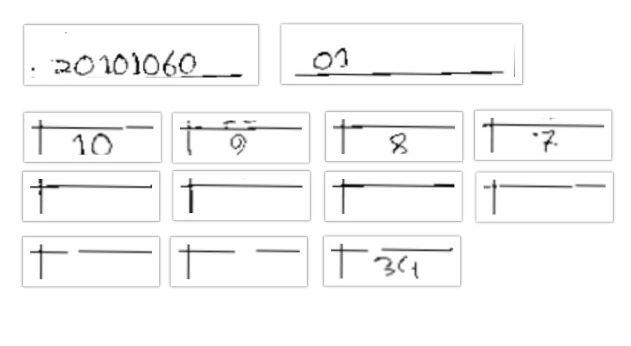 20101060 01
10 9 8 7
34